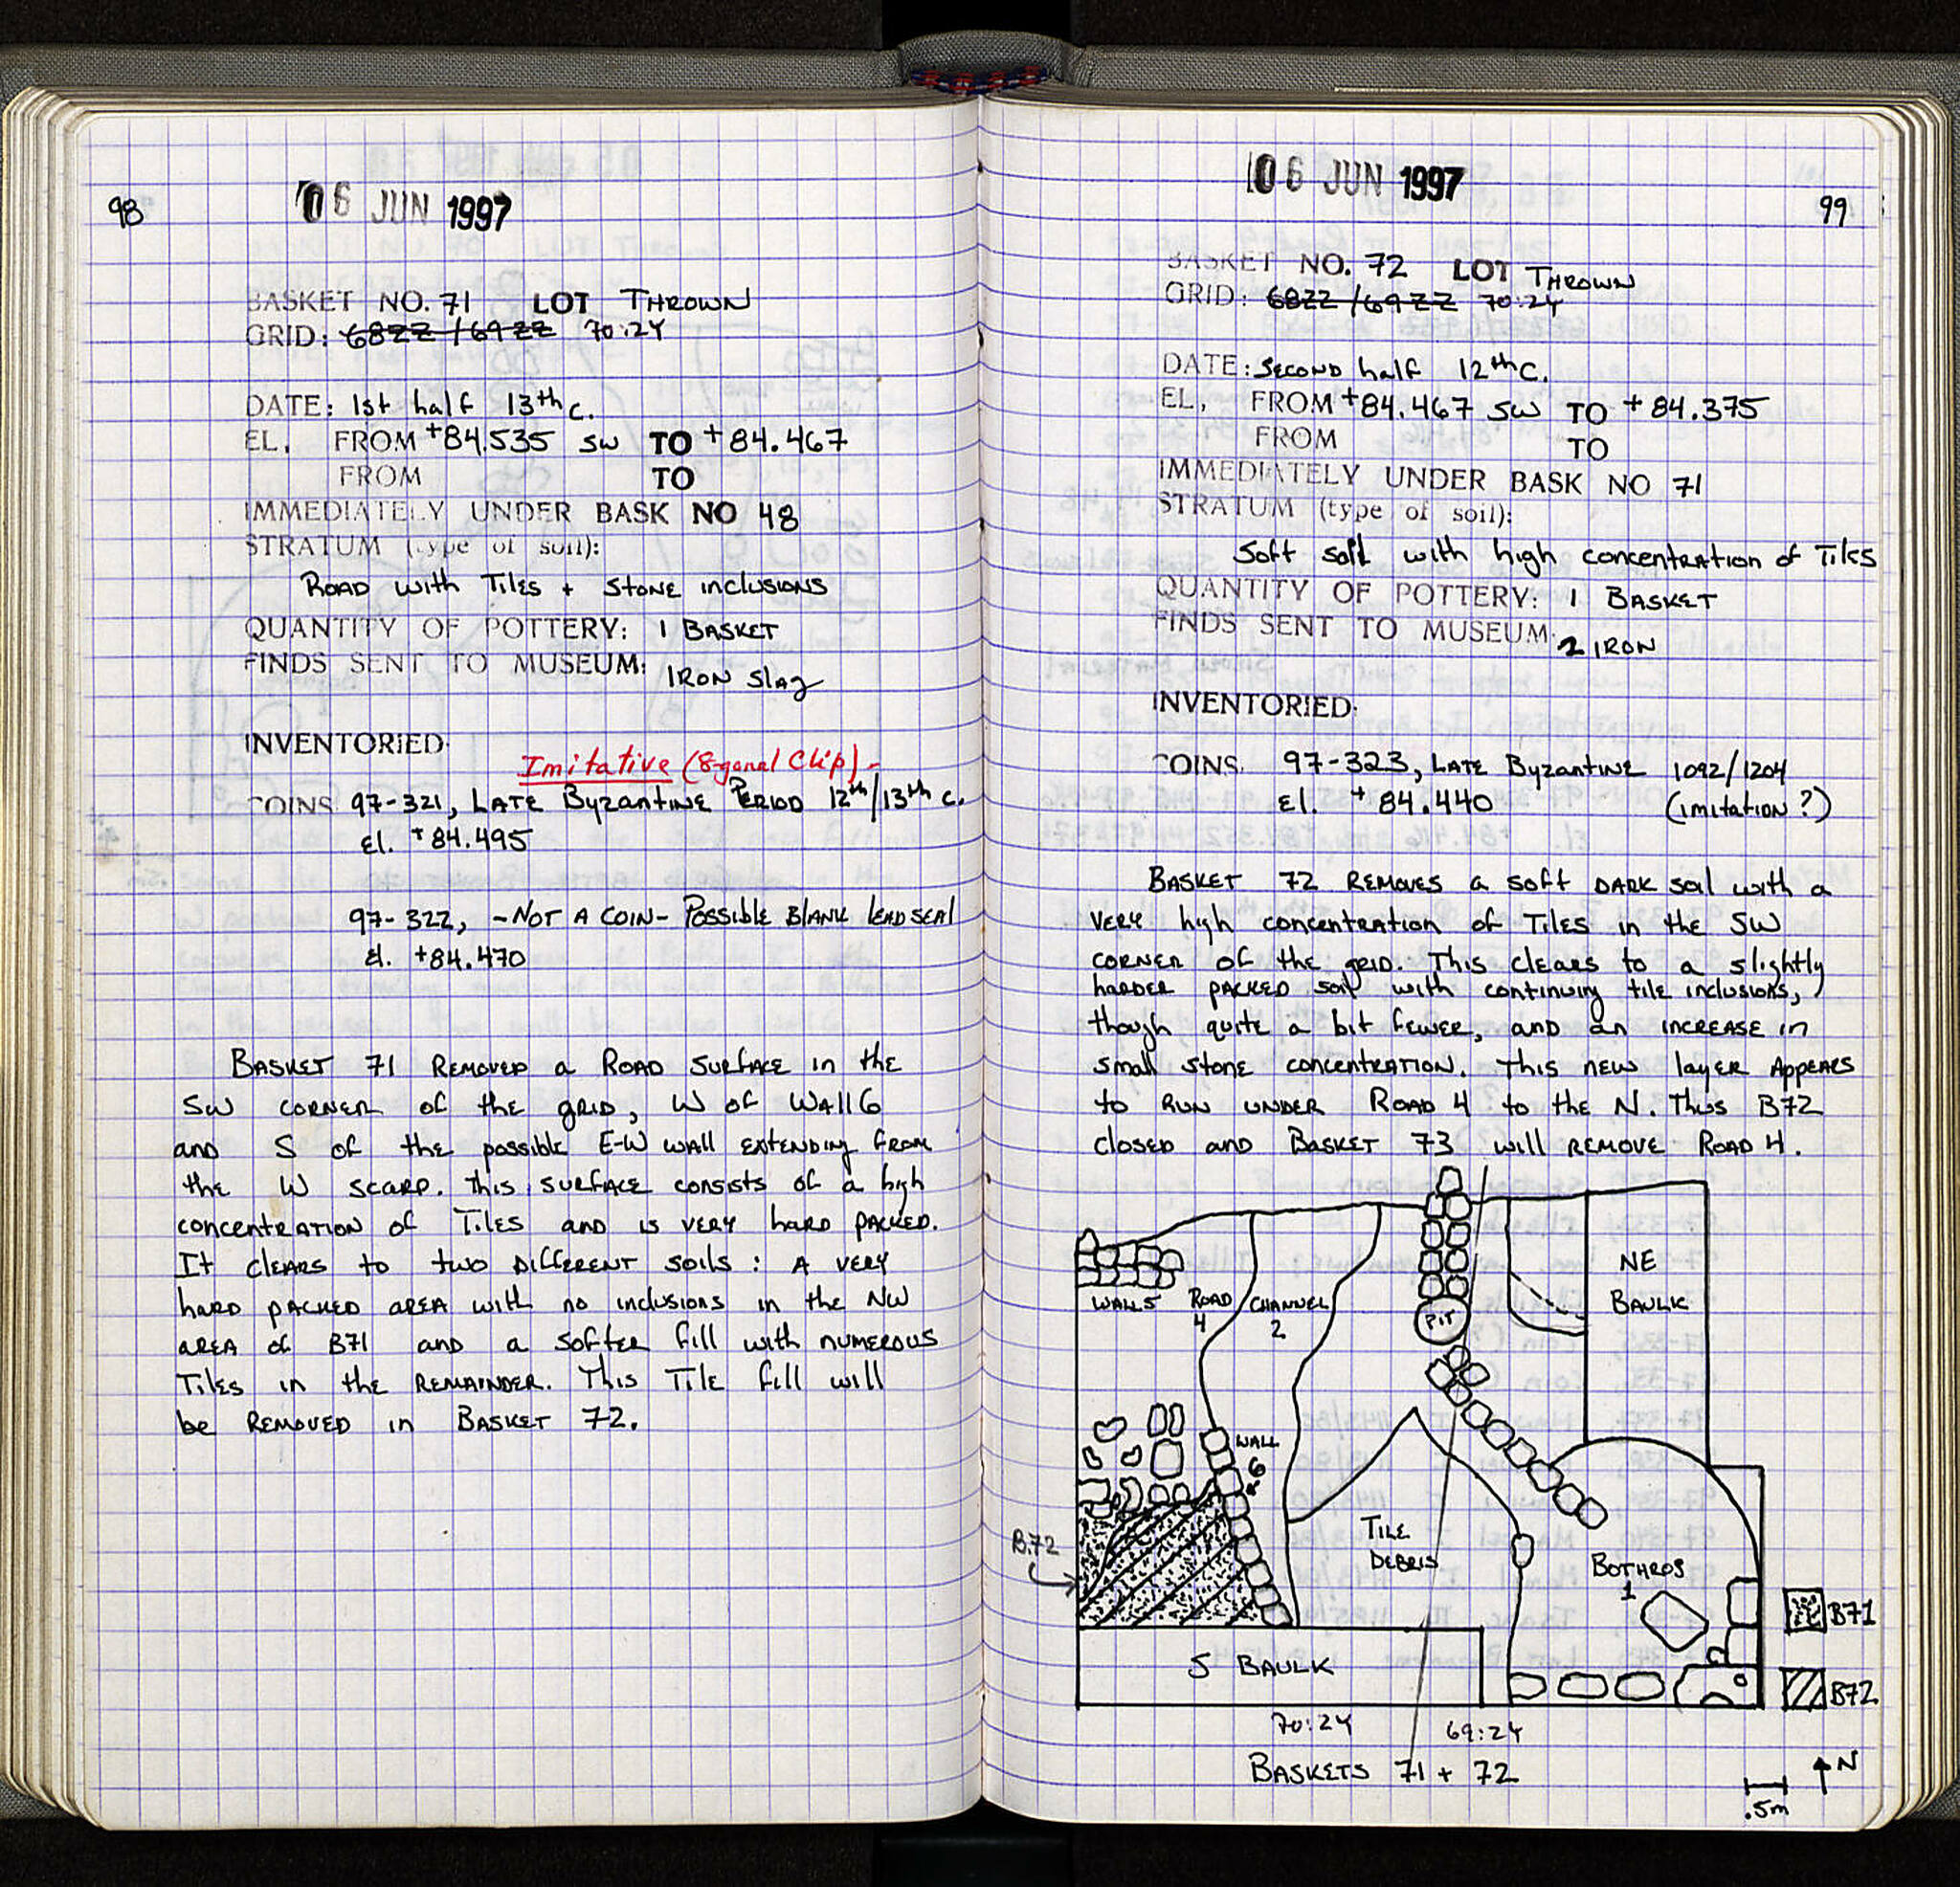 98
06 JUN 1997
BASKET NO. 71 LOT THROWN
GRID: 68ZZ/69ZZ 70:24
DATE: 1st half 13th c.
EL. FROM +84.535 SW TO +84.467
FROM TO
IMMEDIATELY UNDER BASK NO 48
STRATUM (type of soil):
ROAD with Tiles + STONE inclusions
QUANTITY OF POTTERY: 1 BASKET
FINDS SENT TO MUSEUM: IRON Slag
INVENTORIED:
Imitative (8-gonal Clip)-
COINS 97-321, LATE Byzantine Period 12th/13th c.
El. +84.495
97-322, -NOT A COIN- Possible BLANK lead seal
El. +84.470
BASKET 71 REMOVED a ROAD SURFACE in the
SW CORNER of the grid, W of Wall 6
and S of the possible E-W wall EXTENDING FROM
the W SCARP. This SURFACE consists of a high
concentration of Tiles and is very hard packed.
It clears to two DIFFERENT soils: A very
hard packed area with no inclusions in the NW
area of B71 and a softer fill with numerous
Tiles in the REMAINDER. This Tile fill will
be REMOVED in BASKET 72.
06 JUN 1997
99
BASKET NO. 72 LOT THROWN
GRID: 68ZZ/69ZZ 70:24
DATE: Second half 12th c.
EL. FROM +84.467 SW TO +84.375
FROM TO
IMMEDIATELY UNDER BASK NO 71
STRATUM (type of soil):
Soft soil with high concentration of Tiles
QUANTITY OF POTTERY: 1 BASKET
FINDS SENT TO MUSEUM: 2 IRON
INVENTORIED:
COINS. 97-323, LATE Byzantine 1092/1204
El. +84.440 (imitation?)
BASKET 72 REMOVES a soft DARK soil with a
very high concentration of Tiles in the SW
corner of the grid. This clears to a slightly
harder packed soil with continuing tile inclusions,
though quite a bit fewer, and an increase in
small stone concentration. This new layer appears
to run under ROAD 4 to the N. Thus B72
closed and Basket 73 will remove Road 4.
NE
BAULK
WALL 5
ROAD
4
CHANNEL
2
PIT
WALL
6
B.72
TILE
DEBRIS
BOTHROS
1
B71
S BAULK
B72
70:24 69:24
BASKETS 71 + 72
N
.5m